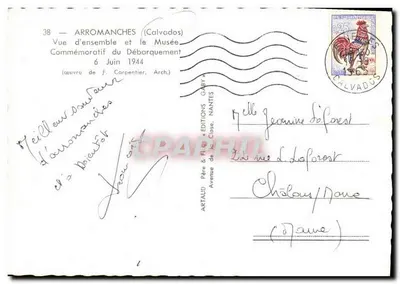 38 — ARROMANCHES (Calvados)
Vue d'ensemble et le Musée
Commémoratif du Débarquement
6 Juin 1944
(œuvre de F. Carpentier, Arch.)
Meilleur souvenir
d'arromanches
et à bientôt
ARTAUD Père & Fils • EDITIONS GABY
Avenue de la Close, NANTES
CALVADOS
Melle Jeannine Laforest
rue L Laforest
Châlons/Marne
(Marne)